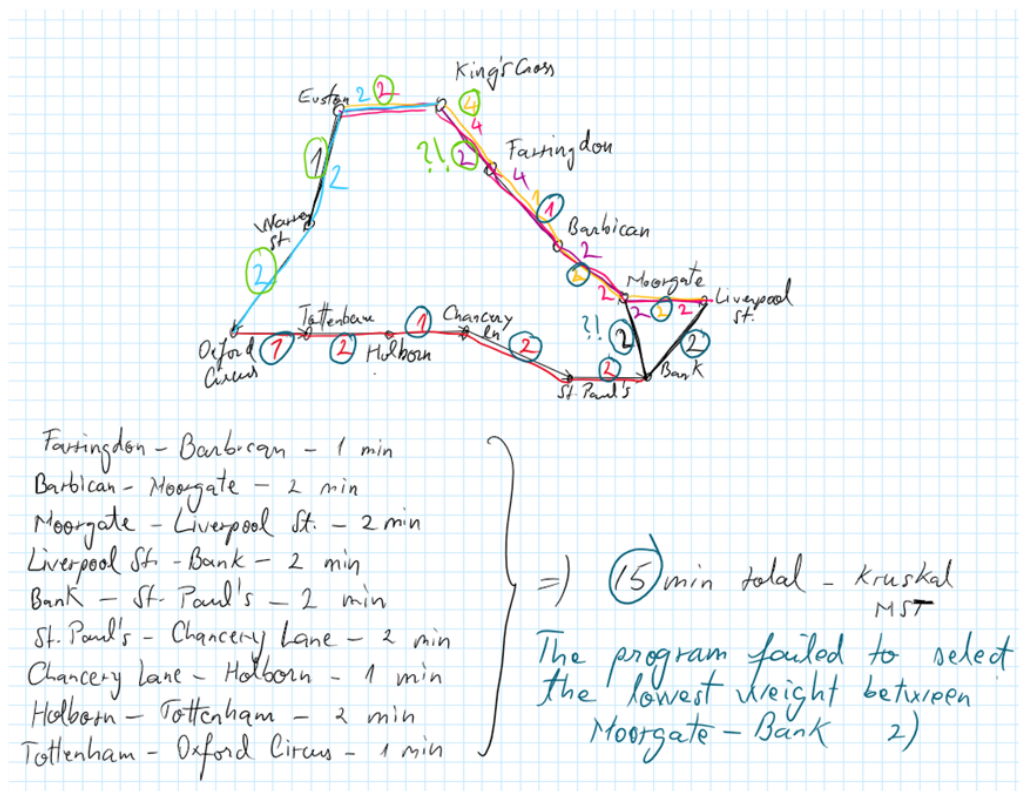 King's Cross
Euston 2 2
4
4
?! 2
Farringdon
4
1
2
1 1
Warren St.
Barbican
2
2
2
Moorgate
2
2 2 2
Liverpool St.
?! 2
2
Oxford Circus
1
Tottenham
2
Holborn
1
Chancery Ln
2
2
St. Paul's
Bank
Farringdon - Barbican - 1 min
Barbican - Moorgate - 2 min
Moorgate - Liverpool St. - 2 min
Liverpool St. - Bank - 2 min
Bank - St. Paul's - 2 min
St. Paul's - Chancery Lane - 2 min
Chancery Lane - Holborn - 1 min
Holborn - Tottenham - 2 min
Tottenham - Oxford Circus - 1 min
=) 15 min total - Kruskal
MST
The program failed to select
the lowest weight between
Moorgate - Bank 2)